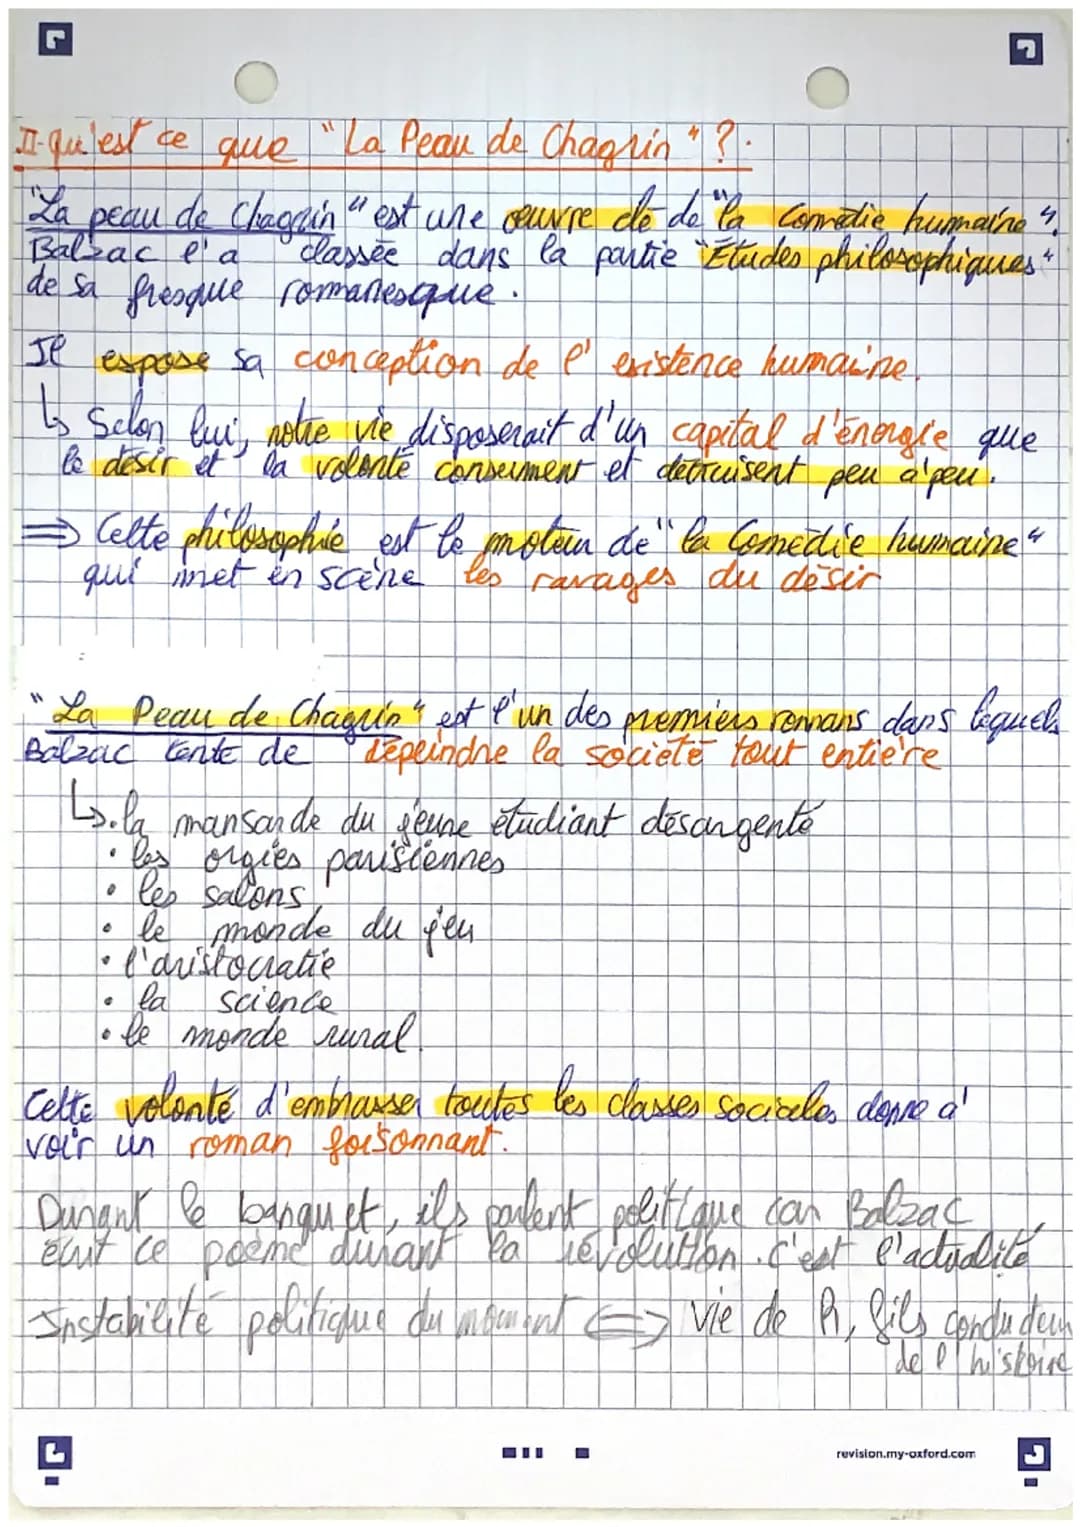 II-qu'est ce que "La Peau de Chagrin" ?.
"La peau de Chagrin" est une œuvre clé de "la Comédie humaine".
Balzac l'a classée dans la partie "Études philosophiques"
de sa fresque romanesque.
Il expose sa conception de l'existence humaine.
↳ Selon lui, notre vie disposerait d'un capital d'énergie que
le désir et la volonté consument et détruisent peu à peu.
⇒ Cette philosophie est le moteur de "la Comédie humaine"
qui met en scène les ravages du désir
"La Peau de Chagrin" est l'un des premiers romans dans lequels
Balzac tente de dépeindre la société tout entière
↳ • la mansarde du jeune étudiant désargenté
• les orgies parisiennes
• les salons
• le monde du jeu
• l'aristocratie
• la science
• le monde rural.
Cette volonté d'embrasser toutes les classes sociales donne à
voir un roman foisonnant.
Durant le banquet, ils parlent politique car Balzac
écrit ce poème durant la révolution. C'est l'actualité
Instabilité politique du moment ⇔ vie de R, fils conducteur
de l'histoire
revision.my-oxford.com